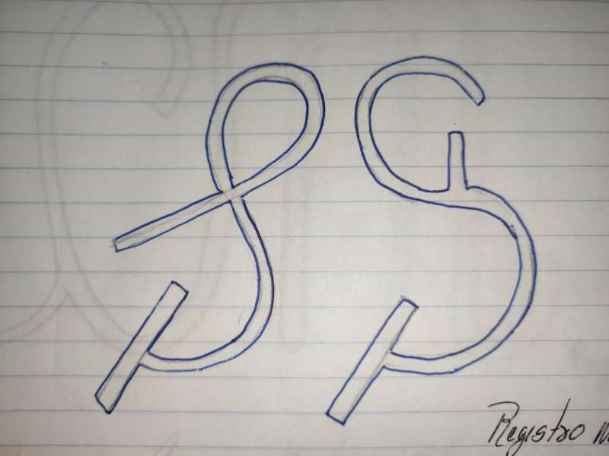 S S
Registro